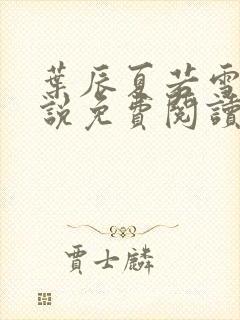 葉辰夏若雪
說免費閱讀
賈士麟